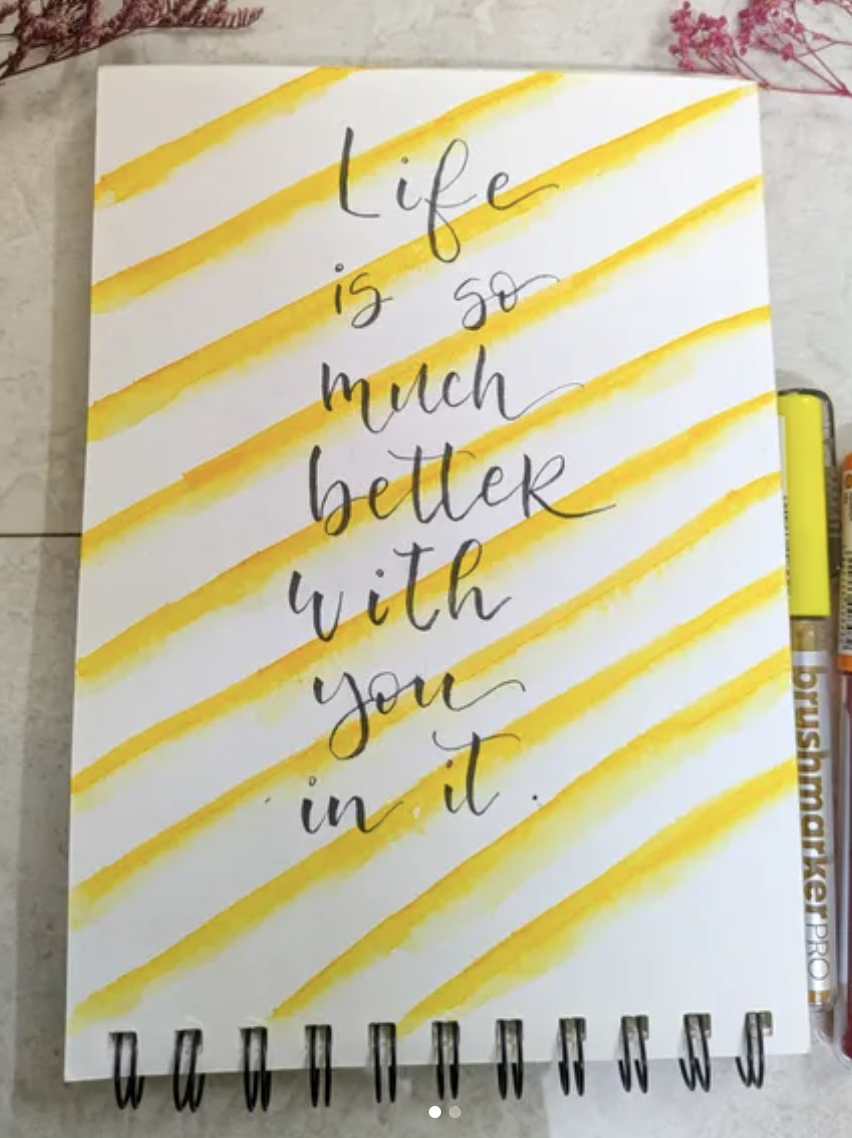 Life
is so
much
better
with
you
in it.
brushmarkerPRO